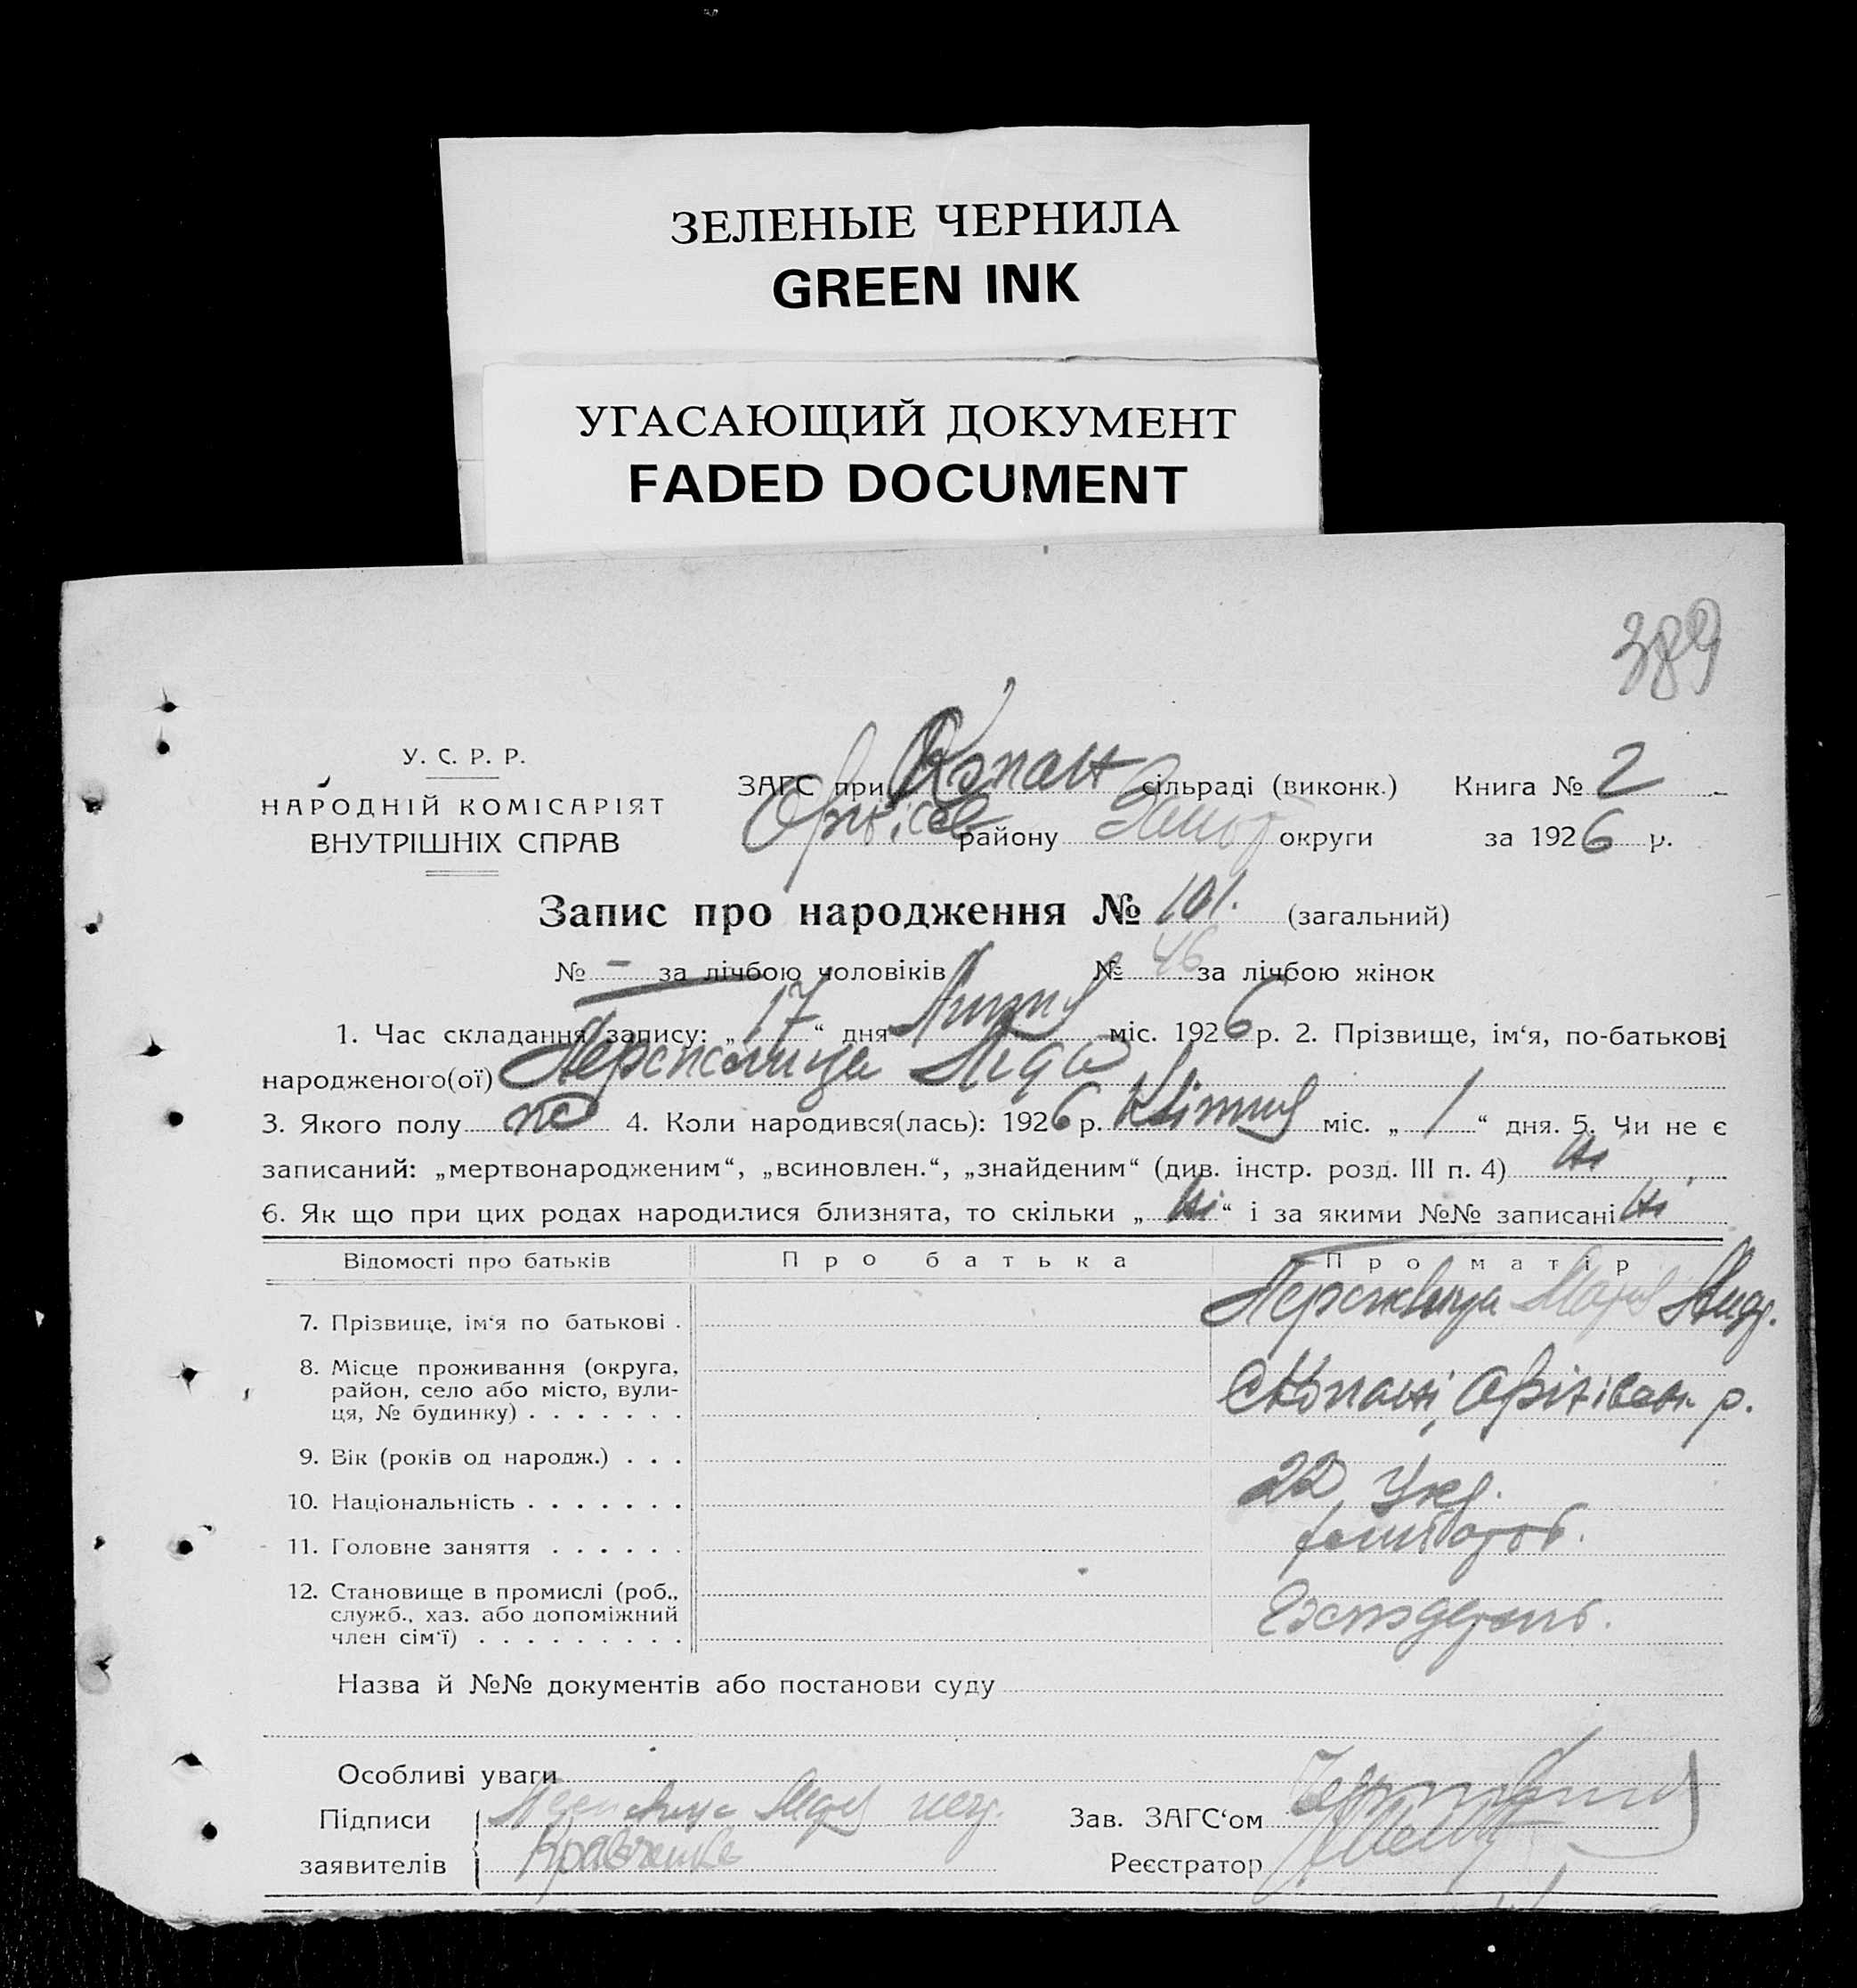 ЗЕЛЕНЫЕ ЧЕРНИЛА
GREEN INK
УГАСАЮЩИЙ ДОКУМЕНТ
FADED DOCUMENT
389
У. С. Р. Р.
НАРОДНІЙ КОМІСАРІЯТ
ВНУТРІШНІХ СПРАВ
ЗАГС при Копан сільраді (виконк.) Книга № 2
району Запор округи за 1926 р.
Запис про народження № 101. (загальний)
№ - за лічбою чоловіків № 46 за лічбою жінок
1. Час складання запису: „17“ дня Липня міс. 1926 р. 2. Прізвище, ім‘я, по-батькові
народженого(ої) Ліда
3. Якого полу 4. Коли народився(лась): 1926 р. міс. „1“ дня. 5. Чи не є
записаний: „мертвонародженим“, „всиновлен.“, „знайденим“ (див. інстр. розд. III п. 4) Ні
6. Як що при цих родах народилися близнята, то скільки „Ні“ і за якими №№ записані Ні
Відомості про батьків Про батька Про матір
7. Прізвище, ім‘я по батькові . Марія
8. Місце проживання (округа,
район, село або місто, вули-
ця, № будинку) . . . . . . . с Копані, Оріхівськ. р.
9. Вік (років од народж.) . . . 22
10. Національність . . . . . . . Укр.
11. Головне заняття . . . . . .
12. Становище в промислі (роб.,
служб., хаз. або допоміжний
член сім‘ї) . . . . . . . . .
Назва й №№ документів або постанови суду
Особливі уваги
Підписи
Зав. ЗАГС‘ом
заявителів Кравченко
Реєстратор